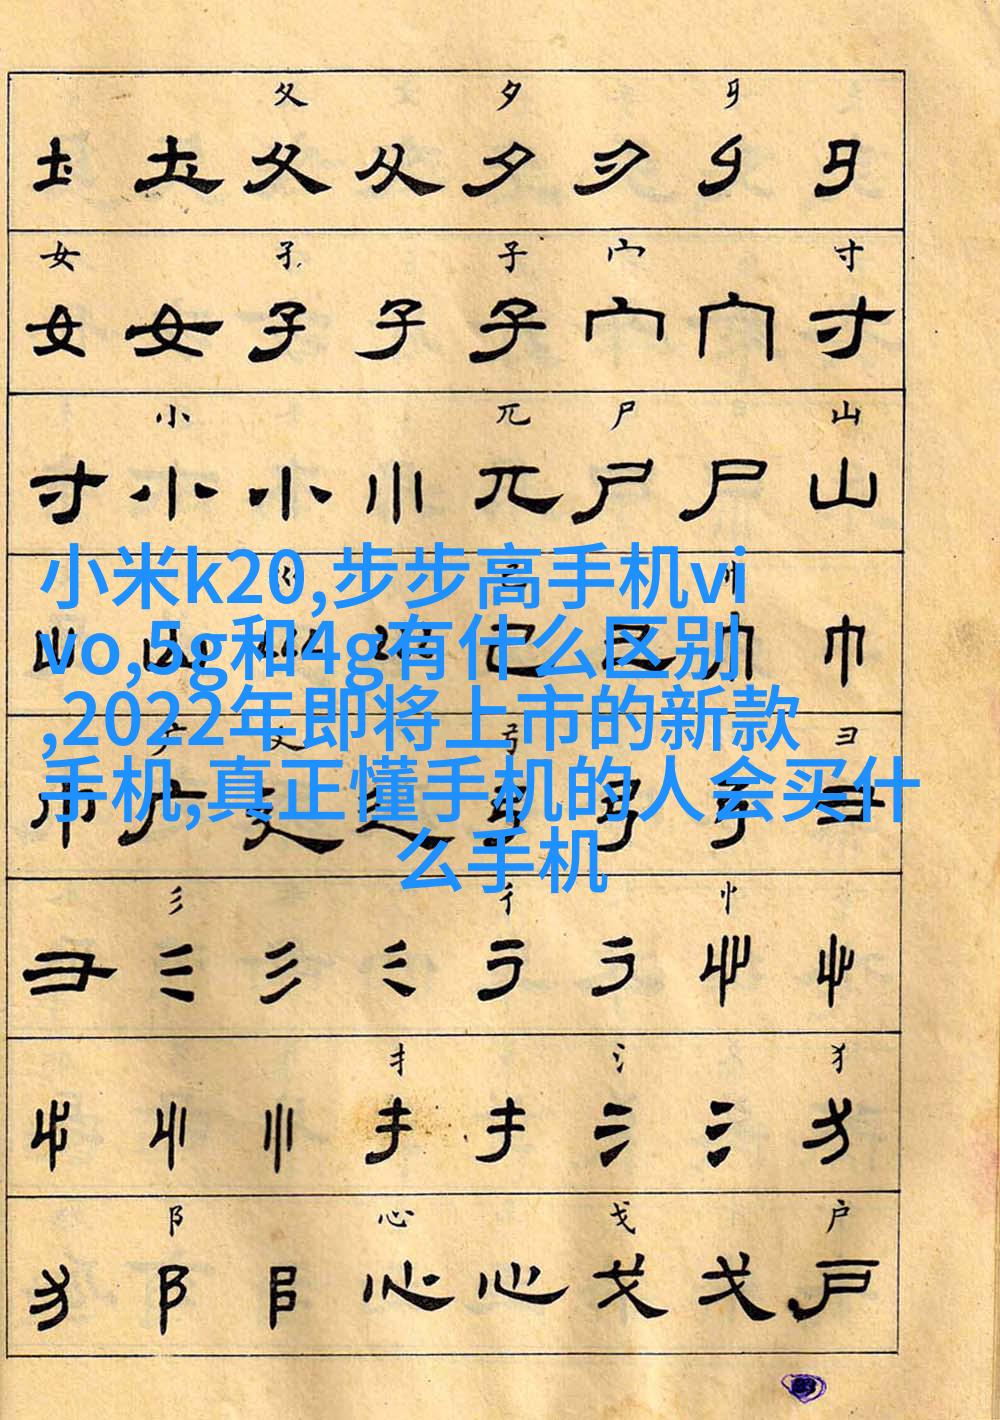 夂 夕
土 土 夂 夂 夕 夕
女 子 子 宀 寸
女 女 子 子 子 宀 宀 寸
小 兀 尸 山
寸 小 小 小 兀 尸 尸 山
小米k20,步步高手机vi
vo,5g和4g有什么区别
,2022年即将上市的新款
手机,真正懂手机的人会买什
么手机
彡 彳 忄
彐 彡 彡 彡 彳 彳 忄 忄
扌 氵 犭
忄 忄 忄 扌 扌 氵 氵 犭
阝 心 戈 户
犭 阝 阝 心 心 戈 戈 户